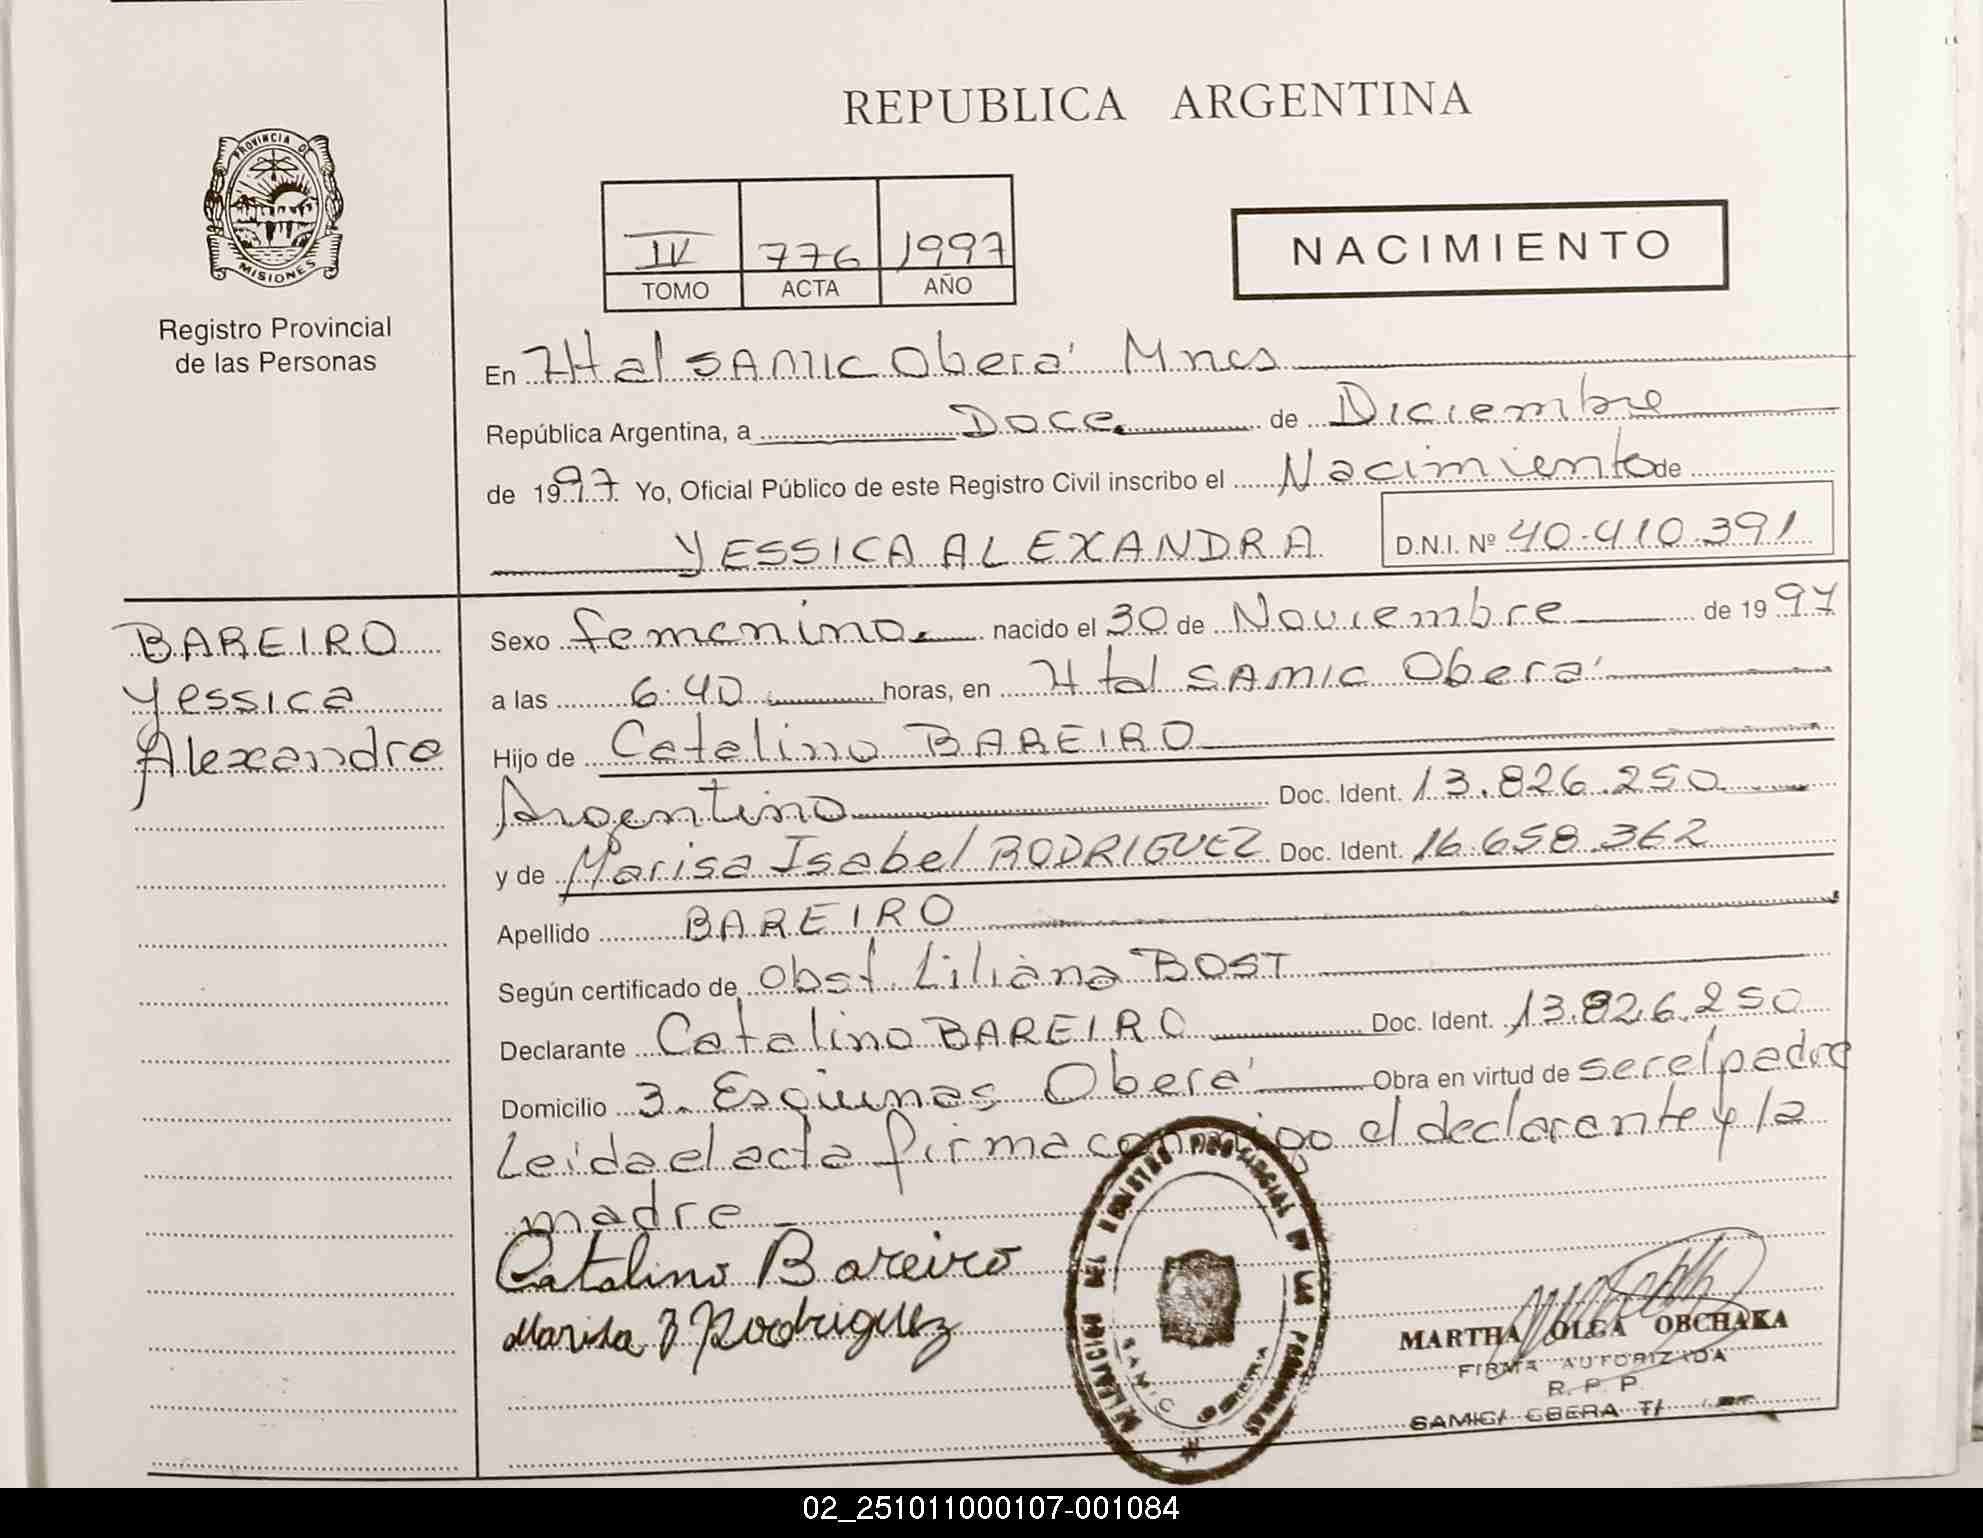 REPUBLICA ARGENTINA
PROVINCIA DE
MISIONES
Registro Provincial
de las Personas
IV 776 1997
TOMO ACTA AÑO
NACIMIENTO
En Htal SAMIC Oberá Mnes
República Argentina, a Doce de Diciembre
de 1997 Yo, Oficial Público de este Registro Civil inscribo el Nacimiento de
YESSICA ALEXANDRA D.N.I. Nº 40.410.391
BAREIRO
Yessica
Alexandra
Sexo femenino. nacido el 30 de Noviembre de 1997
a las 6:40 horas, en Htal SAMIC Oberá
Hijo de Catalino BAREIRO
Argentino Doc. Ident. 13.826.250
y de Marisa Isabel RODRIGUEZ Doc. Ident. 16.658.362
Apellido BAREIRO
Según certificado de Obst. Liliana BOST
Declarante Catalino BAREIRO Doc. Ident. 13.826.250
Domicilio 3. Esquinas Oberá Obra en virtud de ser el padre
Leída el acta firma conmigo el declarante y la
madre
Catalino Bareiro
Marisa I Rodriguez
DELEGACION DEL REGISTRO PROVINCIAL DE LAS PERSONAS
SAMIC OBERA
MARTHA OLGA OBCHAKA
FIRMA AUTORIZADA
R. P. P.
SAMIC/ OBERA
02_251011000107-001084